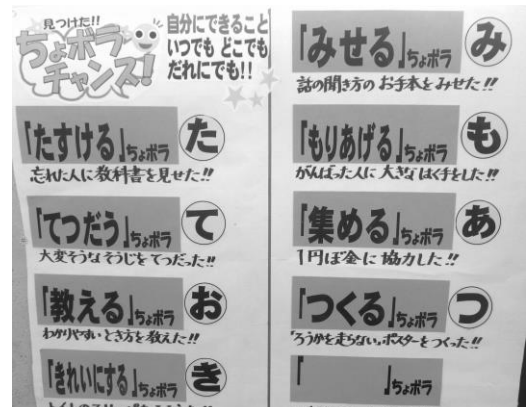 見つけた!!
ちょボラ
チャンス!
自分にできること
いつでも どこでも
だれにでも!!
「たすける」ちょボラ た
忘れた人に教科書を見せた!!
「てつだう」ちょボラ て
大変そうなそうじをてつだった!!
「教える」ちょボラ お
わかりやすいとき方を教えた!!
「きれいにする」ちょボラ き
「みせる」ちょボラ み
話の聞き方のお手本をみせた!!
「もりあげる」ちょボラ も
がんばった人に大きなはく手をした!!
「集める」ちょボラ あ
1円ぼ金に協力した!!
「つくる」ちょボラ つ
「ろうかを走らない」ポスターをつくった!!
「 」ちょボラ